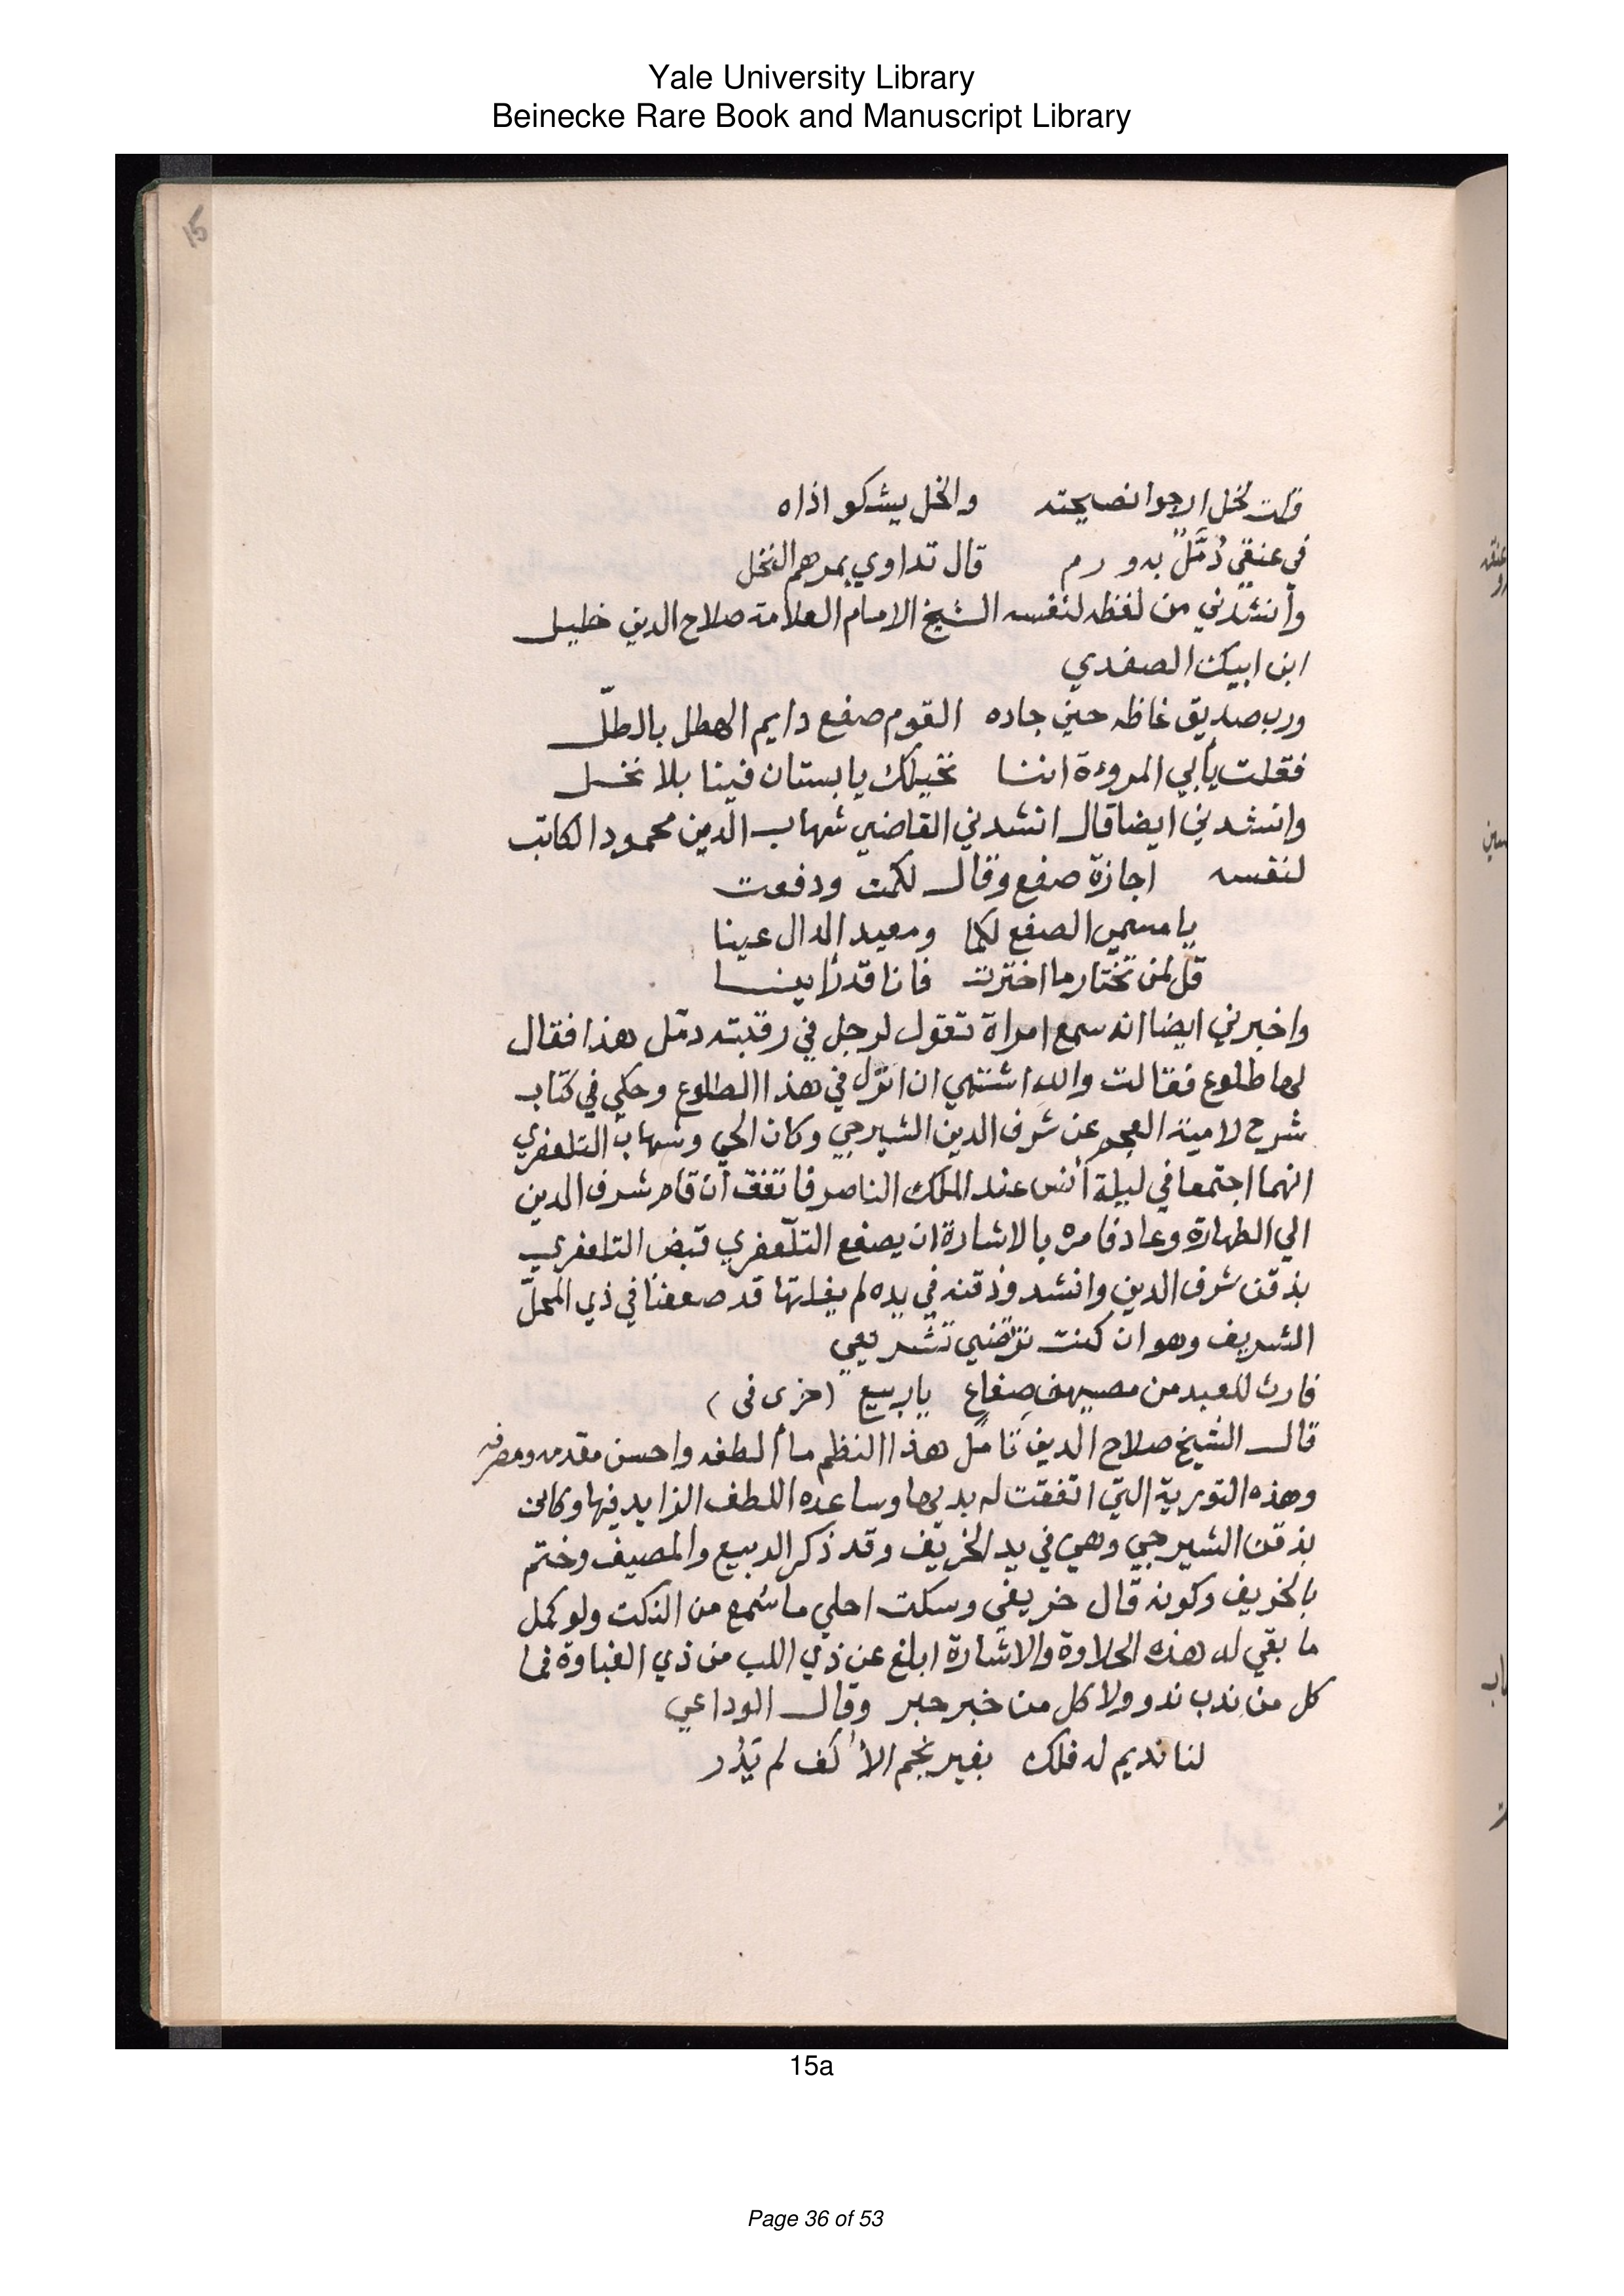 Yale University Library
Beinecke Rare Book and Manuscript Library
15
قلت لخل ارجوا نصيحته والخل يشكو اذاه
في عنقي دُمَّلٌ به ورم قال تداوي بمرهم النخل
وأنشدني من لفظه لنفسه الشيخ الامام العلامة صلاح الدين خليل
ابن ابيك الصفدي
ورب صديق غاظه حين جاده القوم صفع دايم الهطل بالطلّ
فقلت يأبي المروءة اننا نخيلك يا بستان فينا بلا نخل
وانشدني ايضا قال انشدني القاضي شهاب الدين محمود الكاتب
لنفسه اجازة صفع وقال لكمت ودفعت
يا مسمي الصفع لكما ومعيد الدال عينا
قل لمن تختار ما اخترت فانا قد رأينا
واخبرني ايضا انه سمع امراة تقول لرجل في رقبته دمّل هذا فقال
لها طلوع فقالت والله اشتهي ان انزل في هذا الطلوع وحكي في كتاب
شرح لامية العجم عن شرف الدين الشيرجي وكان الحي وشهاب التلعفري
انهما اجتمعا في ليلة أنس عند الملك الناصر فاتفق أن قام شرف الدين
الي الطهارة وعاد فامره بالاشارة ان يصفع التلّعفري قبض التلعفري
بذقن شرف الدين وانشد وذقنه في يده لم يفلتها قد صفعنا في ذي المحلّ
الشريف وهو ان كنت ترتضي تشريعي
فارث للعبد من مصيف صفاع يا ربيع (خرى في)
قال الشيخ صلاح الدين تامل هذا النظم ما ألطفه واحسن مقدمه
وهذه التورية التي اتفقت له بديها وساعده اللطف الزايد فيها وكانت
بذقن الشيرجي وهي في يد الخريف وقد ذكر الربيع والمصيف وختم
بالخريف وكونه قال خريفي وسكت احلي ما سُمع من النكت ولو كمل
ما بقي له هذه الحلاوة والاشارة ابلغ عن ذي اللب من ذي الغباوة فما
كل من ندب ندو ولا كل من خبر حبر وقال الوداعي
لنا نديم له فلك بغير نجم الأكف لم يَدُر
15a
Page 36 of 53